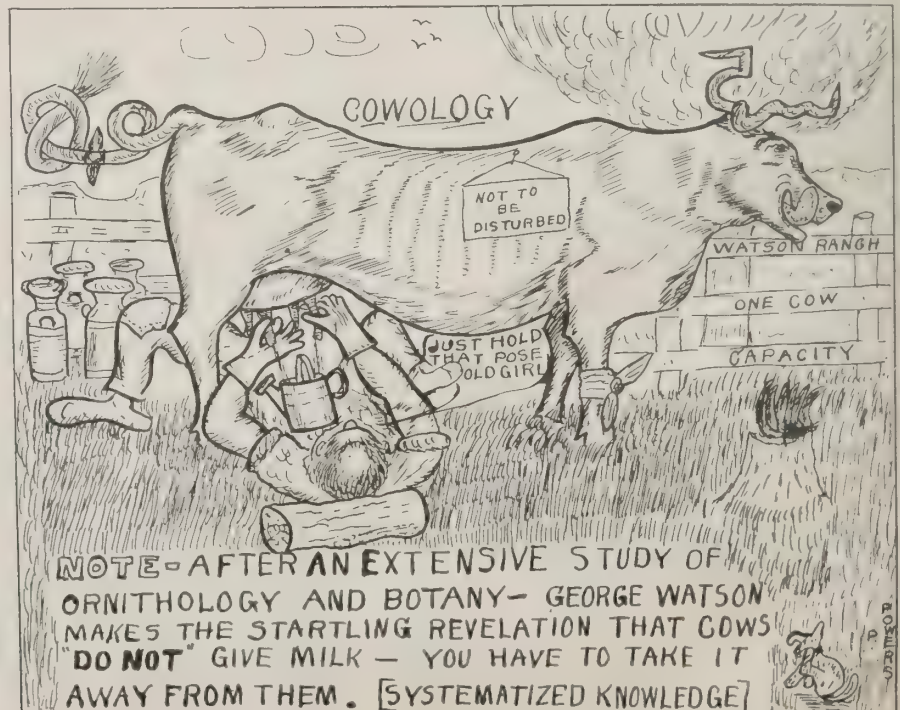 COWOLOGY
NOT TO
BE
DISTURBED
WATSON RANCH
ONE COW
CAPACITY
JUST HOLD
THAT POSE
OLD GIRL
NOTE - AFTER AN EXTENSIVE STUDY OF
ORNITHOLOGY AND BOTANY - GEORGE WATSON
MAKES THE STARTLING REVELATION THAT COWS
"DO NOT" GIVE MILK - YOU HAVE TO TAKE IT
AWAY FROM THEM. [SYSTEMATIZED KNOWLEDGE]
P. POWERS